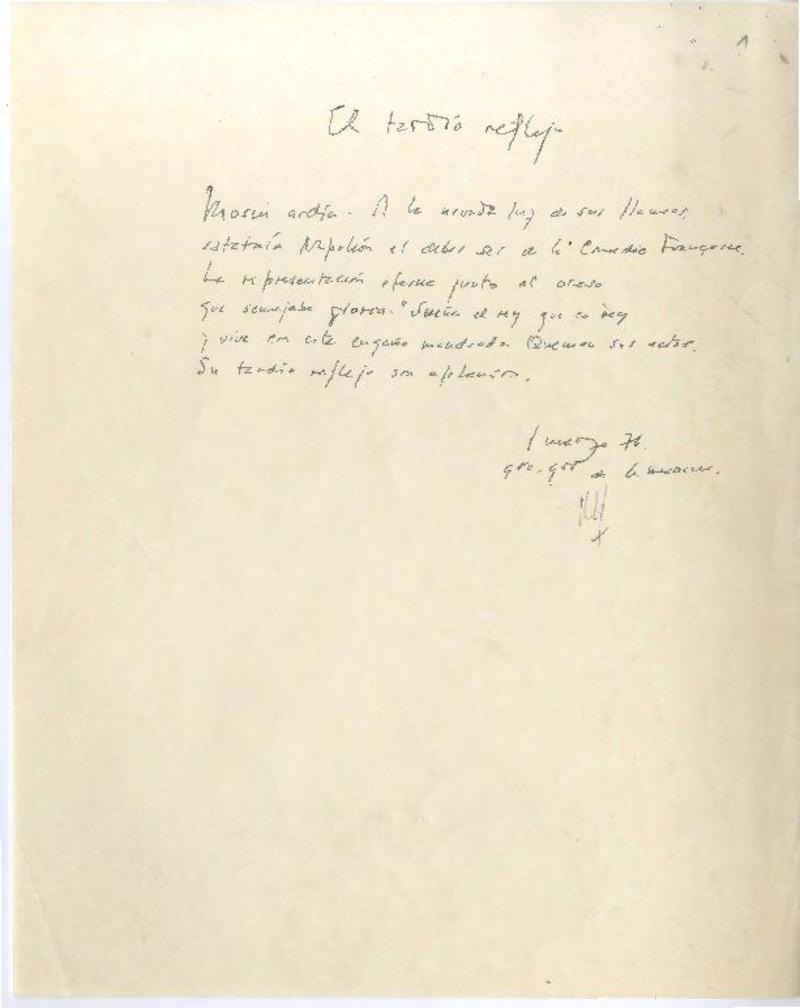 1
El tardío reflejo
Moscú ardía. A la nevada luz de sus llamas,
estatuía Napoleón el deber ser de la Comedie Françoise.
La representación efernu junto al ocaso
que semejaba gloria. "Sueña el rey que es rey
y vive con este engaño mandando. Queman sus actos.
Su tardío reflejo son aplausos.
1 marzo 76.
de la